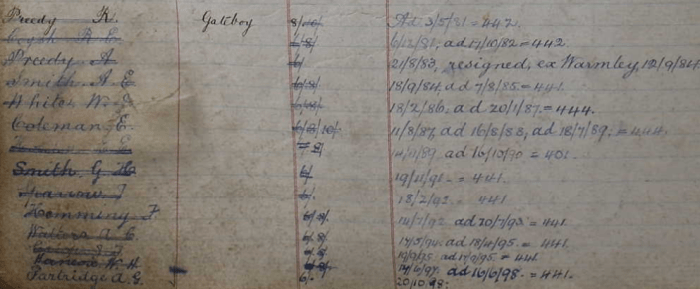 Preedy R. Gateboy 8/10/ Ad 3/5/81 = 442.
6/8/ 6/12/81, ad 17/10/82 = 442
Preedy A 6/ 21/8/83, resigned, ex Warmley, 12/9/84
Smith A E 6/8/ 18/9/84, ad 7/8/85 = 441.
White W. J 18/2/86, ad 20/1/87 = 444.
Coleman E. 6/8/10/ 11/8/87, ad 16/8/88, ad 18/7/89. = 444.
ad 16/10/90 = 401.
Smith G H 6/ 19/11/91 = 441.
Yearrow J 6/ 18/2/92 = 441
Hemming F. 6/8/ 14/7/92 ad 20/7/93 = 441.
Walters A C 6/8 17/3/94, ad 18/4/95 = 441.
6/8 = 441.
W. H. 6/8 ad 16/6/98 = 441.
Partridge A. G. 6/. 20.10.98.